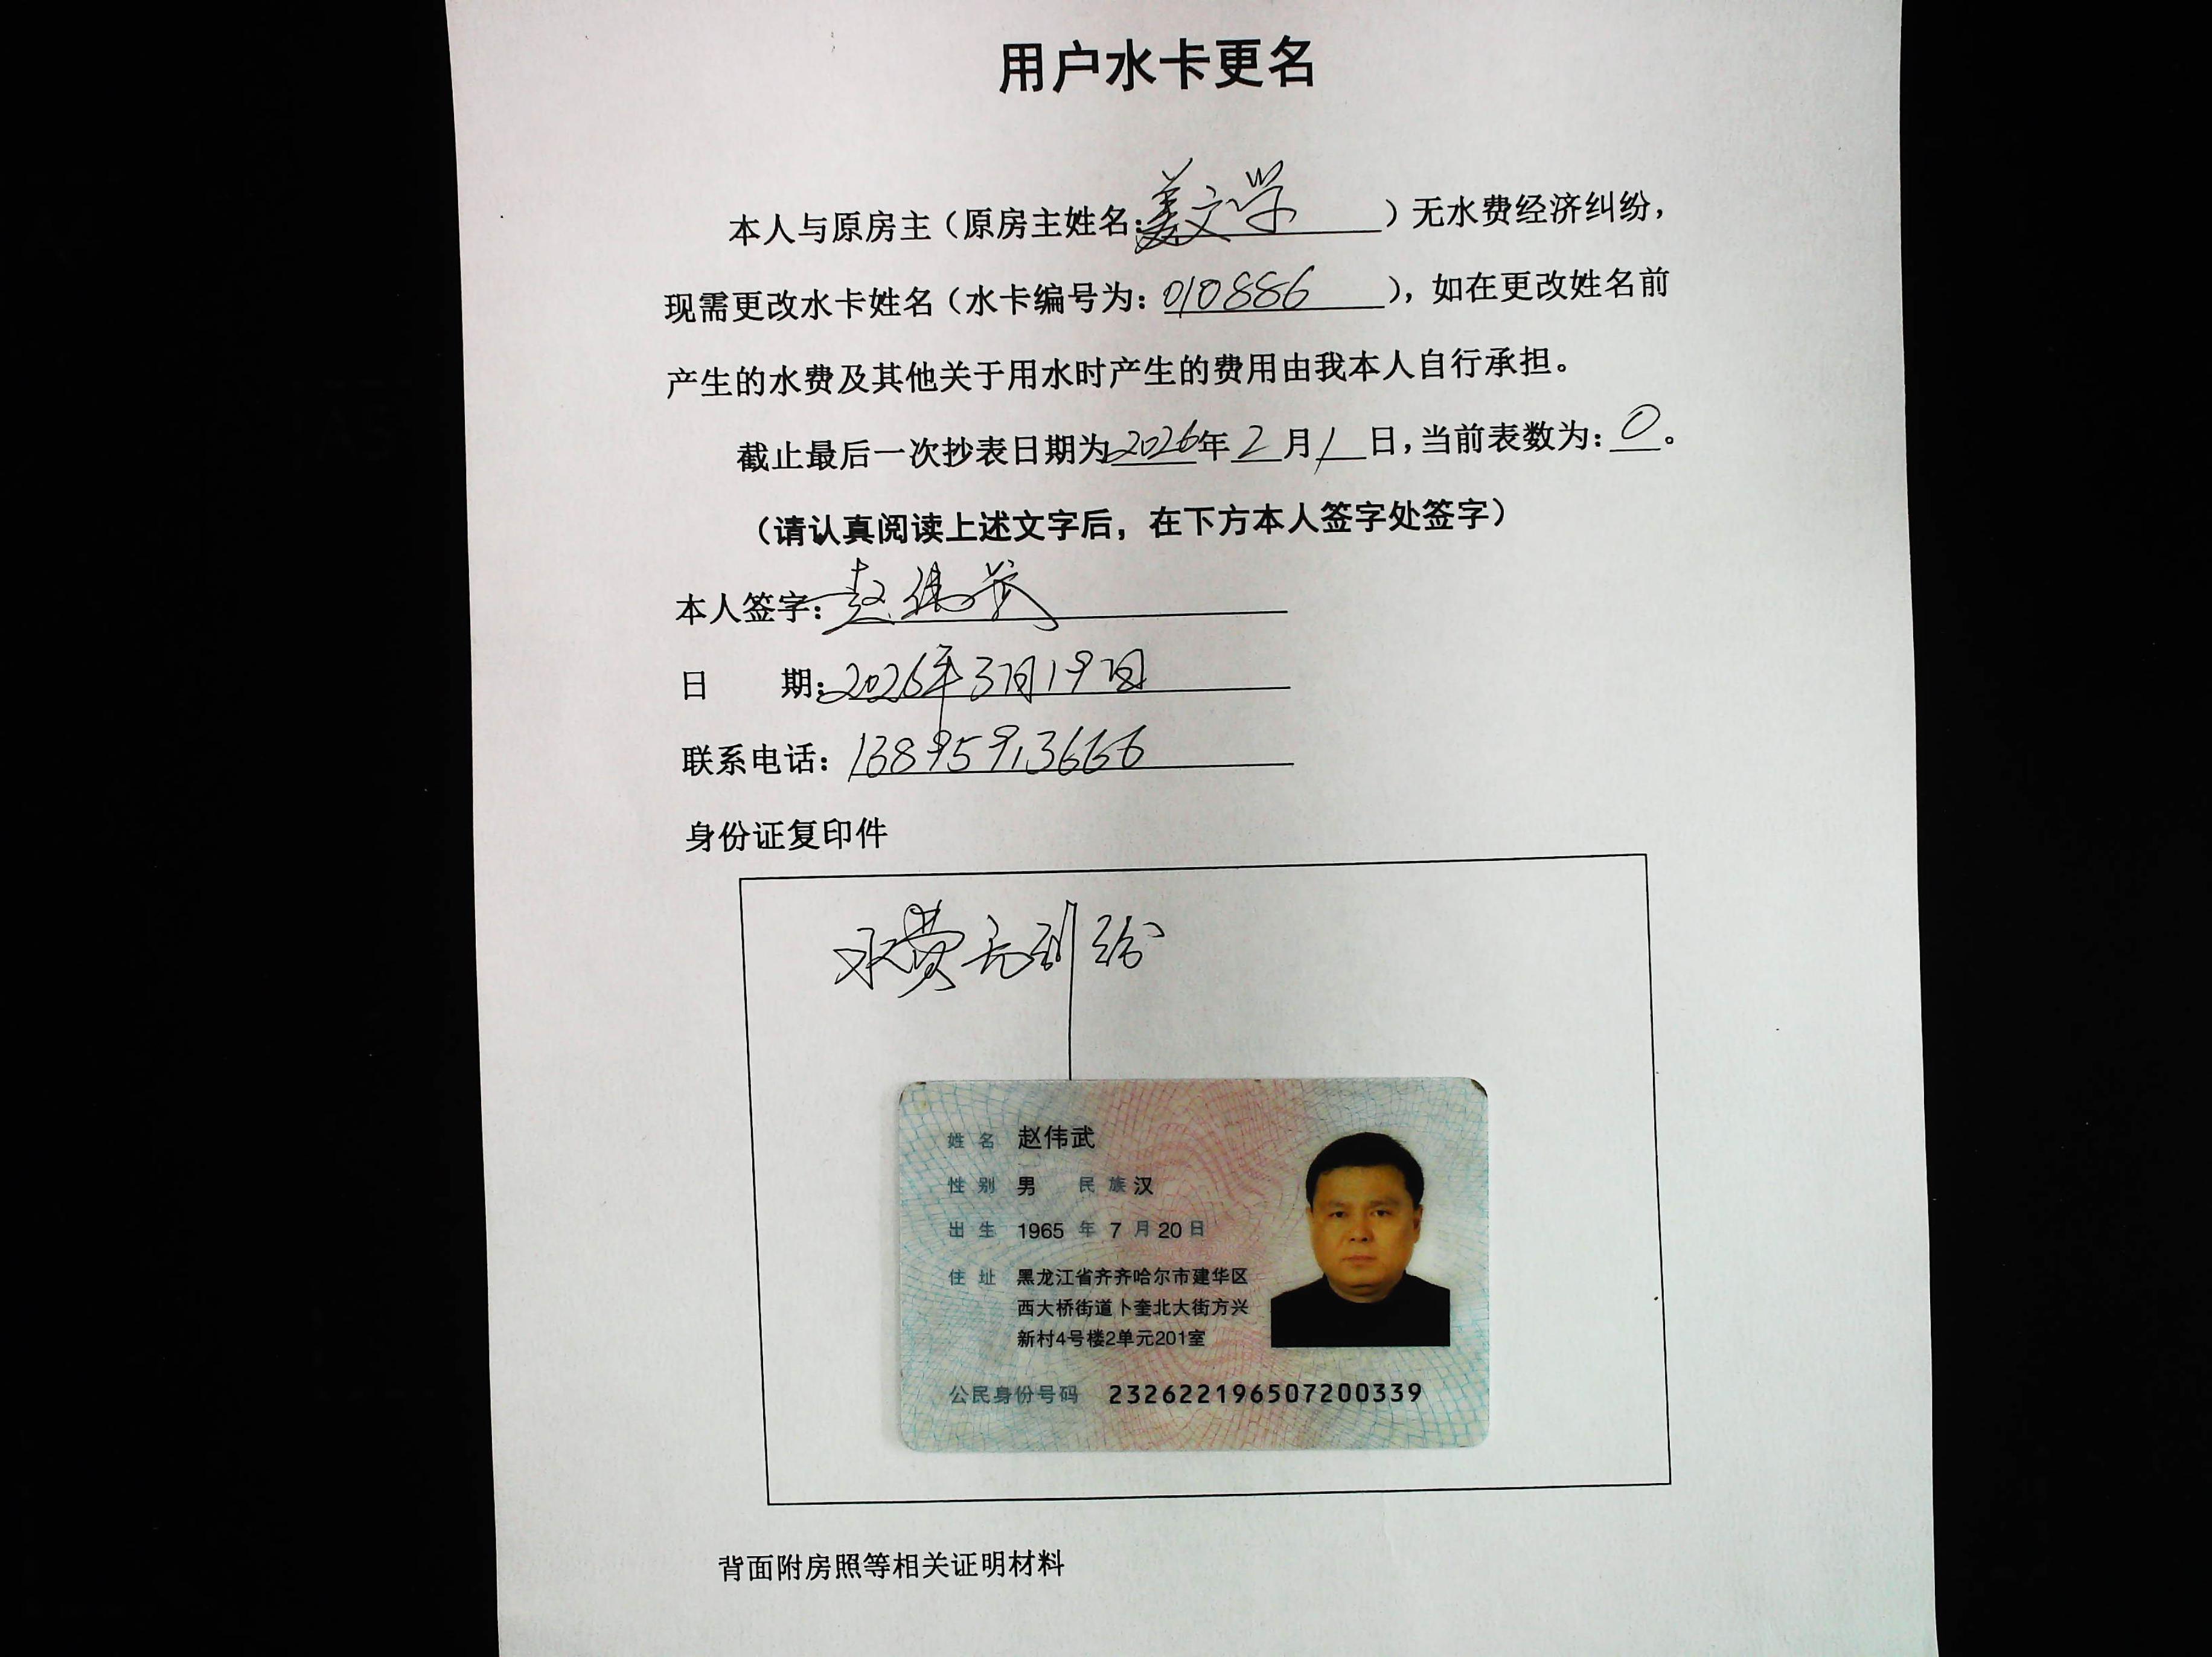 用户水卡更名
本人与原房主（原房主姓名：姜文学）无水费经济纠纷，
现需更改水卡姓名（水卡编号为：010886），如在更改姓名前
产生的水费及其他关于用水时产生的费用由我本人自行承担。
截止最后一次抄表日期为2026年2月1日，当前表数为：0。
（请认真阅读上述文字后，在下方本人签字处签字）
本人签字：赵伟武
日 期：2026年3月19日
联系电话：13895913666
身份证复印件
水费无纠纷
姓名 赵伟武
性别 男 民族 汉
出生 1965 年 7 月 20 日
住址 黑龙江省齐齐哈尔市建华区
西大桥街道卜奎北大街方兴
新村4号楼2单元201室
公民身份号码 232622196507200339
背面附房照等相关证明材料